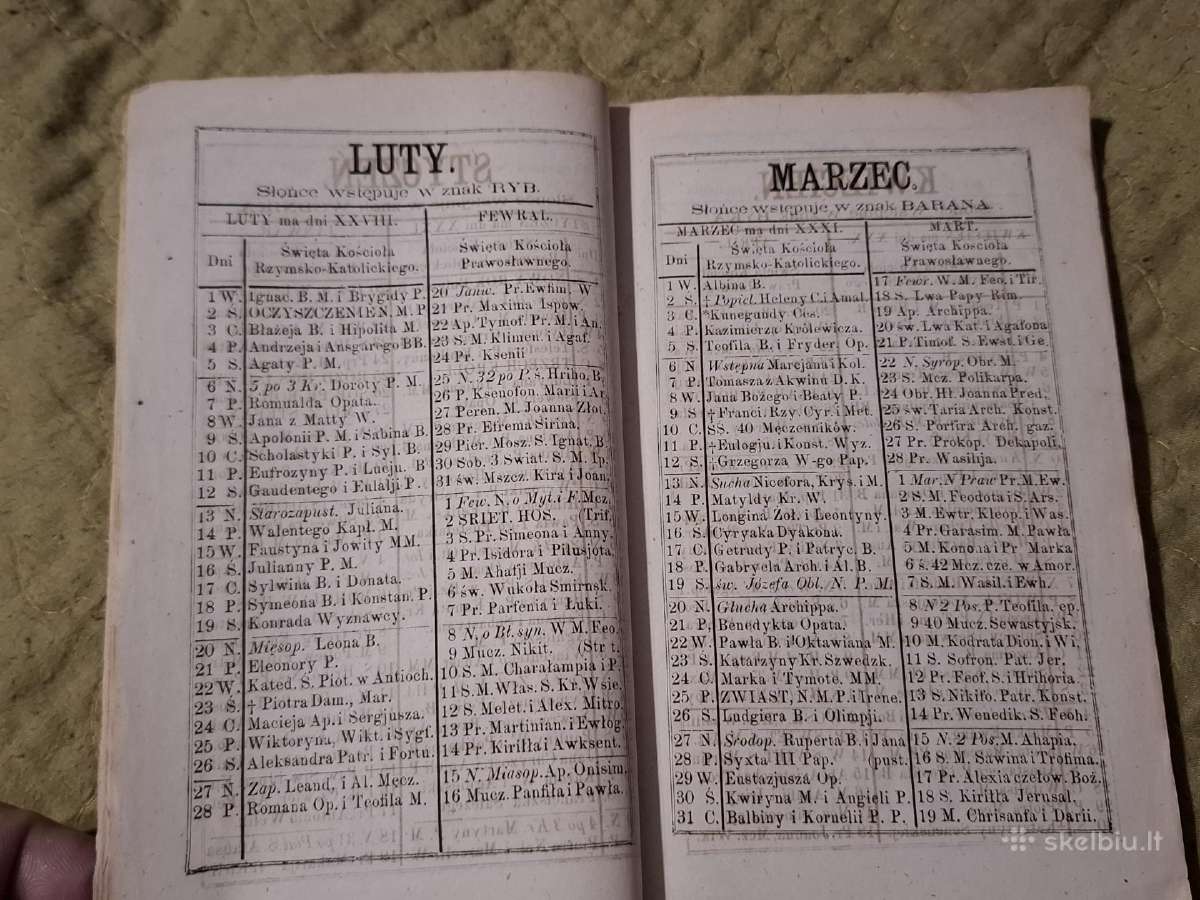 LUTY.
Słońce wstępuje w znak RYB.
LUTY ma dni XXVIII.
FEWRAL.
Dni
Święta Kościoła
Rzymsko-Katolickiego.
Święta Kościoła
Prawosławnego.
1 W. Ignac. B. M. i Brygidy P. 20 Janw. Pr. Ewfim. W.
2 Ś. OCZYSZCZENIE N. M. P. 21 Pr. Maxima Ispow.
3 C. Błażeja B. i Hipolita M. 22 Ap. Tymof. Pr. M. i An.
4 P. Andrzeja i Ansgarego BB. 23 S. M. Klimen. i Agaf.
5 S. Agaty P. M. 24 Pr. Ksenii
6 N. 5 po 3 Kr. Doroty P. M. 25 N. 32 po P. ś. Hriho. B.
7 P. Romualda Opata. 26 P. Ksenofon. Marii i Ar.
8 W. Jana z Matty W. 27 Peren. M. Joanna Złot.
9 Ś. Apolonii P. M. i Sabina B. 28 Pr. Efrema Sirina.
10 C. Scholastyki P. i Syl. B. 29 Pier. Mosz. S. Ignat. B.
11 P. Eufrozyny P. i Lucju. B 30 Sob. 3 Swiat. S. M. Ip.
12 S. Gaudentego i Eulalji P. 31 św. Mszcz. Kira i Joan.
13 N. Starozapust. Juliana. 1 Few. N. o Myt. i F. Mcz.
14 P. Walentego Kapł. M. 2 SRIET. HOS. (Trif.
15 W. Faustyna i Jowity MM. 3 S. Pr. Simeona i Anny.
16 Ś. Julianny P. M. 4 Pr. Isidora i Piłusjota.
17 C. Sylwina B. i Donata. 5 M. Ahafji Mucz.
18 P. Symeona B. i Konstan. P. 6 św. Wukoła Smirnsk.
19 S. Konrada Wyznawcy. 7 Pr. Parfenia i Łuki.
20 N. Mięsop. Leona B. 8 N. o Bł. syn. W M. Feo.
21 P. Eleonory P. 9 Mucz. Nikit. (Str t.
22 W. Kated. S. Piot. w Antioch. 10 S. M. Charałampia i P.
23 Ś. † Piotra Dam., Mar. 11 S. M. Włas. S. Kr. Wsie.
24 C. Macieja Ap. i Sergjusza. 12 S. Melet. i Alex. Mitro.
25 P. Wiktoryna, Wikt. i Sygf. 13 Pr. Martinian. i Ewłog.
26 S. Aleksandra Patr. i Fortu. 14 Pr. Kiriłła i Awksent.
27 N. Zap. Leand, i Al. Męcz. 15 N. Miasop. Ap. Onisim.
28 P. Romana Op. i Teofila M. 16 Mucz. Panfiła i Pawła.
MARZEC.
Słońce wstępuje w znak BARANA.
MARZEC ma dni XXXI.
MART.
Dni
Święta Kościoła
Rzymsko-Katolickiego.
Święta Kościoła
Prawosławnego.
1 W. Albina B. 17 Fewr. W. M. Feo. i Tir.
2 S. † Popiel. Heleny C. i Amal. 18 S. Lwa Papy Rim.
3 C. *Kunegundy Ces. 19 Ap. Archippa.
4 P. Kazimierza Królewicza. 20 św. Lwa Kat. i Agafona
5 S. Teofila B. i Fryder. Op. 21 P. Timof. S. Ewst. i Ge.
6 N Wstępna Marcjana i Kol. 22 N. Syrop. Obr. M.
7 P. Tomasza z Akwinu D. K. 23 S. Mcz. Polikarpa.
8 W. Jana Bożego i Beaty P. 24 Obr. Hł. Joanna Pred.
9 S † Franci. Rzy. Cyr. i Met. 25 św. Taria Arch. Konst.
10 C. SS. 40 Męczenników. 26 S. Porfira Arch. gaz.
11 P. † Eulogju. i Konst. Wyz. 27 Pr. Prokop. Dekapoli.
12 S. † Grzegorza W-go Pap. 28 Pr. Wasilija.
13 N. Sucha Nicefora, Krys. i M. 1 Mar. N Praw Pr. M. Ew.
14 P. Matyldy Kr. W. 2 S. M. Feodota i S. Ars.
15 W. Longina Żoł. i Leontyny. 3 M. Ewtr. Kleop. i Was.
16 Ś. Cyryaka Dyakona. 4 Pr. Garasim. M. Pawła
17 C. Getrudy P. i Patryc. B. 5 M. Konona i Pr Marka
18 P. Gabryela Arch. i Al. B. 6 ś. 42 Mcz. cze. w Amor.
19 S. św. Józefa Obl. N. P. M. 7 S. M. Wasil. i Ewh.
20 N. Głucha Archippa. 8 N 2 Pos. P. Teofila. ep.
21 P. Benedykta Opata. 9 40 Mucz. Sewastyjsk.
22 W. Pawła B. i Oktawiana M. 10 M. Kodrata Dion. i Wi.
23 Ś. Katarzyny Kr. Szwedzk. 11 S. Sofron. Pat. Jer.
24 C. Marka i Tymote. MM. 12 Pr. Feof. S. i Hrihoria.
25 P. ZWIAST. N. M. P. i Irene. 13 S. Nikifo. Patr. Konst.
26 S. Ludgiera B. i Olimpji. 14 Pr. Wenedik. S. Feoh.
27 N. Środop. Ruperta B. i Jana 15 N. 2 Pos. M. Ahapia.
28 P. Syxta III Pap. (pust. 16 S. M. Sawina i Trofima.
29 W. Eustazjusza Op. 17 Pr. Alexia czełow. Boż.
30 Ś. Kwiryna M. i Angieli P. 18 S. Kiriłła Jerusal.
31 C. Balbiny i Kornelii P. P. 19 M. Chrisanfa i Darii.
skelbiu.lt